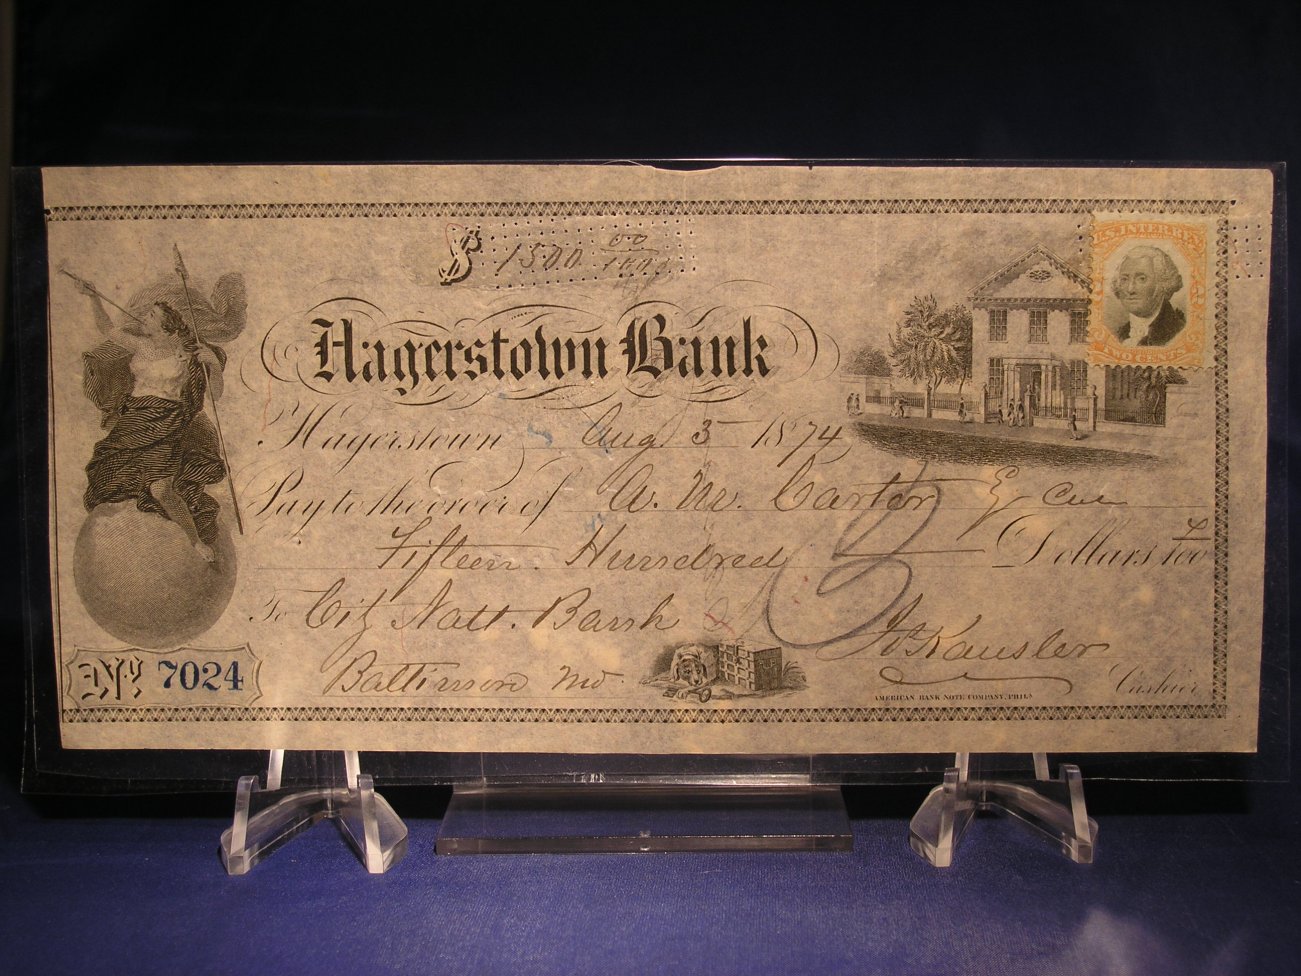 $ 1500 00/100
U.S. INTER. REV.
TWO CENTS
Hagerstown Bank
Hagerstown Aug 3 1874
Pay to the order of A. M. Carter Esq Cas
Fifteen Hundred Dollars /100
To City Natl. Bank
Baltimore Md. Kausler
Cashier
No. 7024
AMERICAN BANK NOTE COMPANY, PHILA